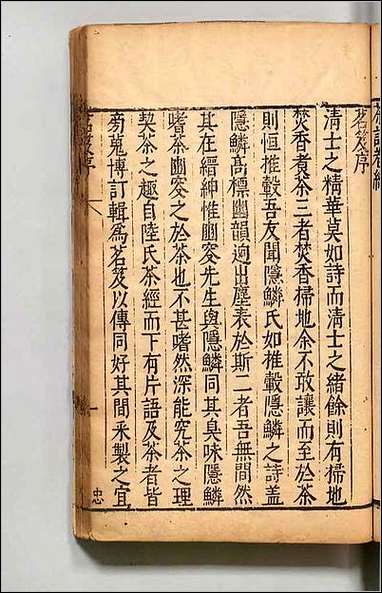 茗笈序
清士之精華莫如詩而清士之緒餘則有掃地
焚香煮茶三者焚香掃地余不敢讓而至於茶
則恒推轂吾友聞隱鱗氏如推轂隱鱗之詩蓋
隱鱗高標幽韻迥出塵表於斯二者吾無間然
其在縉紳惟豳叜先生與隱鱗同其臭味隱鱗
嗜茶豳叜之於茶也不甚嗜然深能究茶之理
契茶之趣自陸氏茶經而下有片語及茶者皆
旁蒐博訂輯為茗笈以傳同好其間采製之宜
茗笈序
一
忠